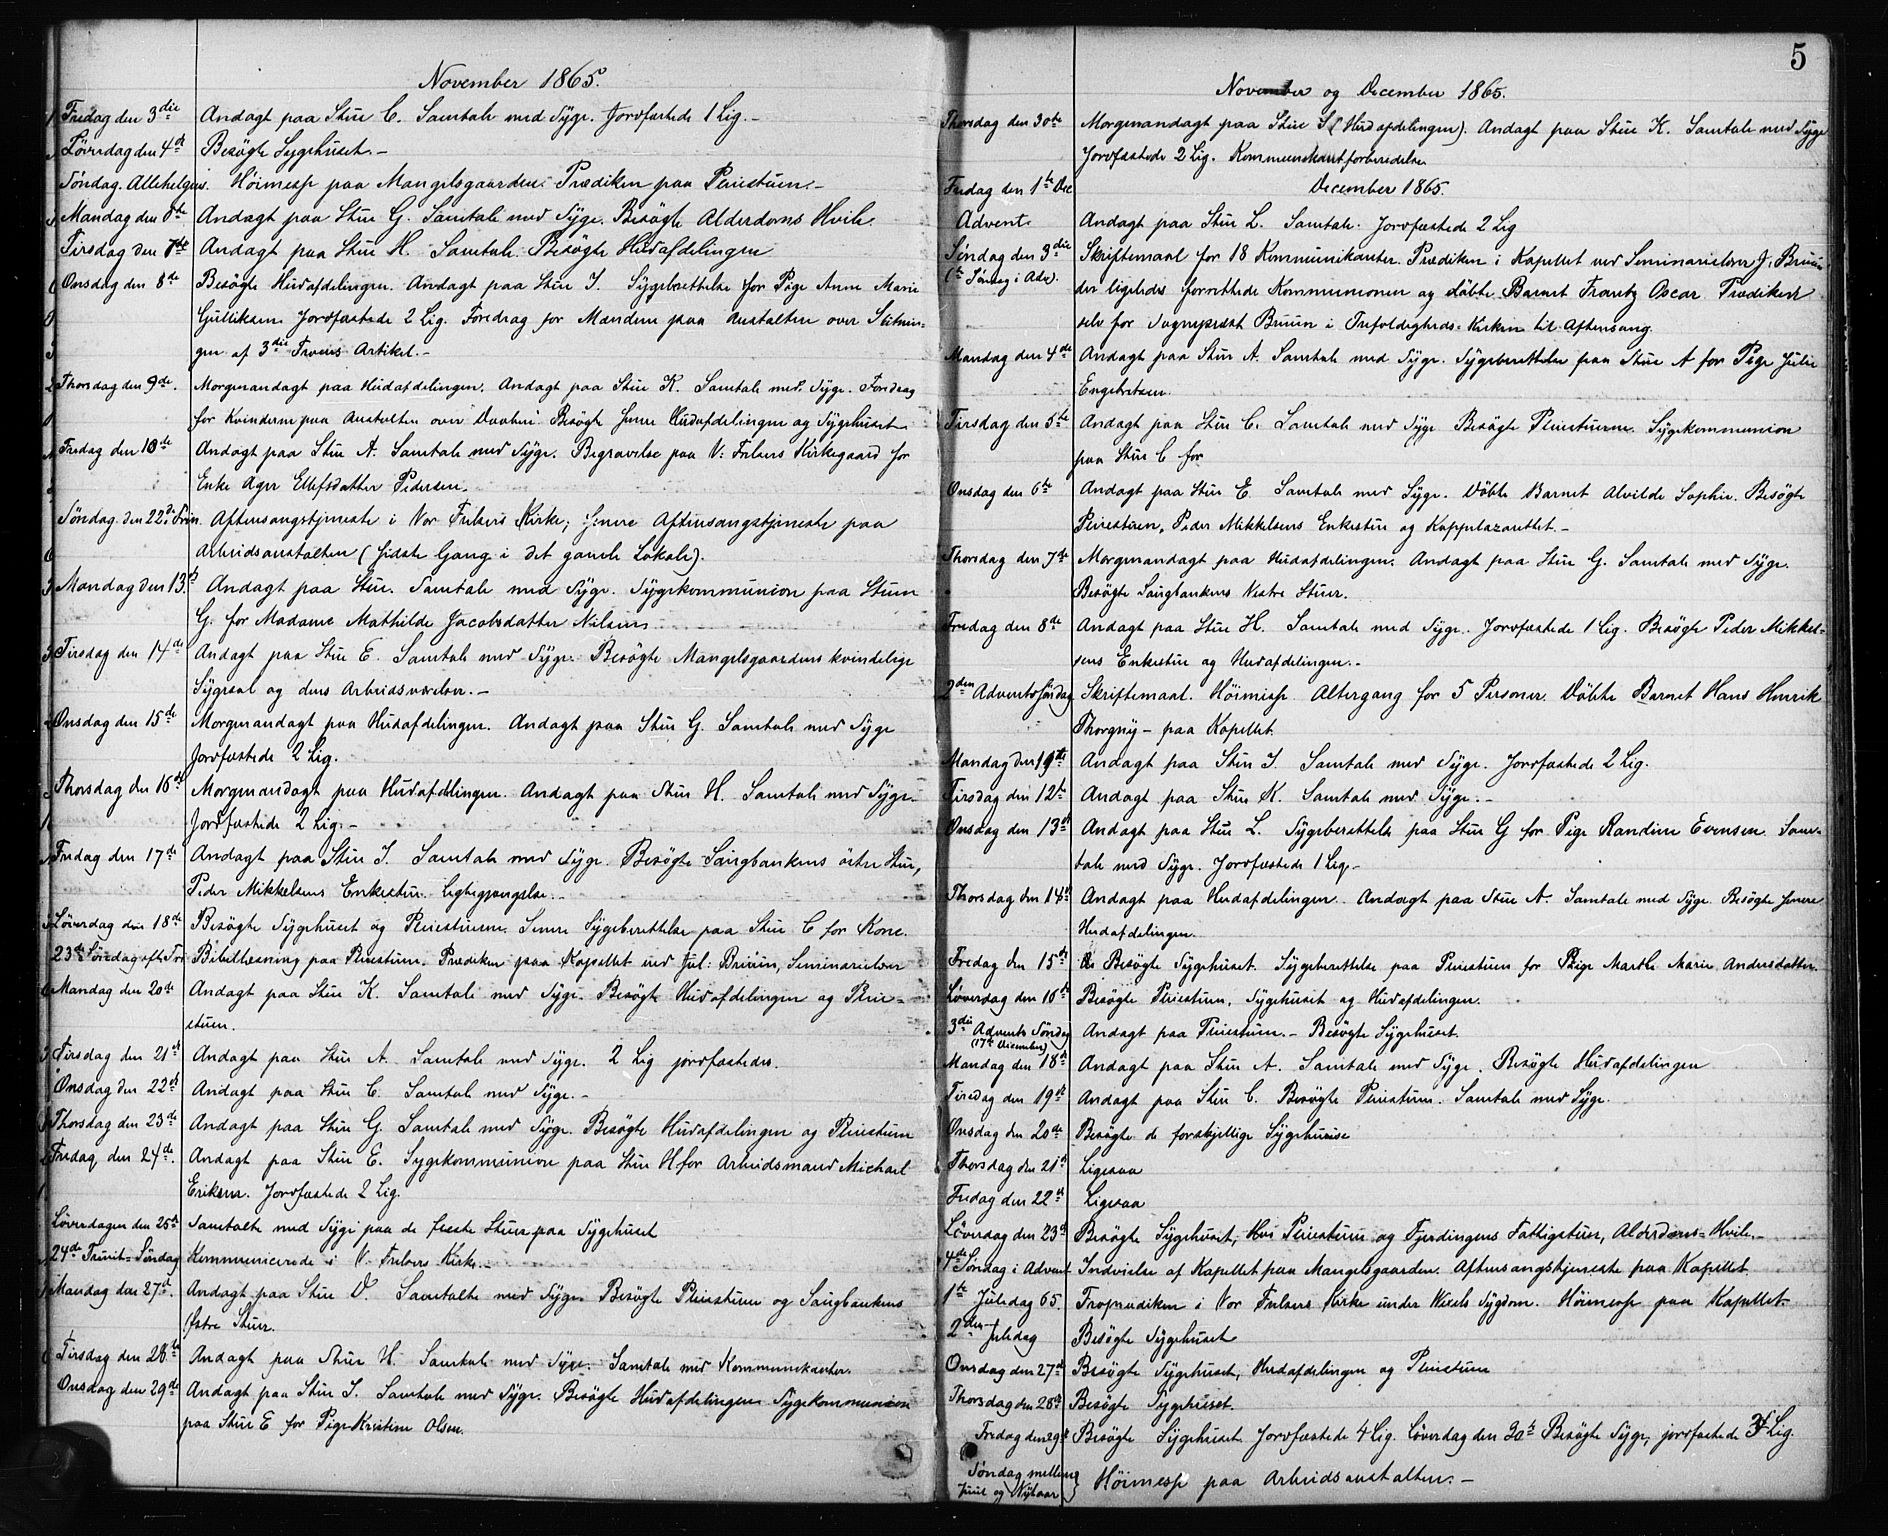 November 1865.
Fredag den 3die Andagt paa Stue C. Samtale med Syge. Jordfæstede 1 Lig. -
Løverdag den 4de Besøgte Sygehuset. -
Søndag. Allehelgens. Høimesse paa Mangelsgaarden. Prædiken paa Pleiestuen. -
Mandag den 6te Andagt paa Stue G. Samtale med Syge. Besøgte Alderdoms Hvile.
Tirsdag den 7de Andagt paa Stue H. Samtale. Besøgte Hudafdelingen
Onsdag den 8de Besøgte Hudafdelingen. Andagt paa Stue I. Sygeberettelse for Pige Anne Marie
Gulliksen. Jordfæstede 2 Lig. Foredrag for Mændene paa Anstalten over Slutnin-
gen af 3die Troens Artikel. -
Thorsdag den 9de. Morgenandagt paa Hudafdelingen. Andagt paa Stue K. Samtale med Syge. Foredrag
for Kvinderne paa Anstalten over Daaben. Besøgte Jenre Hudafdelingen og Sygehuset
Fredag den 10de Andagt paa Stue A. Samtale med Syge. Begravelse paa V: Frelsers Kirkegaard for
Enke Ager Ellefsdatter Pedersen.
Søndag. den 22. Trin. Aftensangstjeneste i Vor Frelsers Kirke; senere Aftensangstjeneste paa
Arbeidsanstalten (sidste Gang i det gamle Lokale).
Mandag den 13. Andagt paa Stue. Samtale med Syge. Sygekommunion paa Stuen
G. for Madame Mathilde Jacobsdatter Nilsen
Tirsdag den 14de Andagt paa Stue E. Samtale med Syge. Besøgte Mangelsgaardens kvindelige
Sygesal og dens Arbeidsværelser. -
Onsdag den 15de Morgenandagt paa Hudafdelingen. Andagt paa Stue G. Samtale med Syge
Jordfæstede 2 Lig.
Thorsdag den 16de Morgenandagt paa Hudafdelingen. Andagt paa Stue H. Samtale med Syge.
Jordfæstede 2 Lig. -
Fredag den 17de Andagt paa Stue I. Samtale med Syge. Besøgte Saugbankens østre Stue,
Peder Mikkelsens Enkestue. Ligtegjængelse. -
Løverdag den 18de Besøgte Sygehuset og Pleiestuen. Senere Sygeberettelse paa Stue C for Kone.
23de Søndag eft. Tr. Bibellæsning paa Pleiestuen. Prædiken paa Kapellet ved Jul: Bruun, Seminarielærer
Mandag den 20de Andagt paa Stue K. Samtale med Syge. Besøgte Hudafdelingen og Pleie-
stuen.
Tirsdag den 21de Andagt paa Stue A. Samtale med Syge. 2 Lig jordfæstedes.
Onsdag den 22de Andagt paa Stue C. Samtale med Syge. -
Thorsdag den 23de Andagt paa Stue G. Samtale med Syge. Besøgte Hudafdelingen og Pleiestuen
Fredag den 24de. Andagt paa Stue E. Sygekommunion paa Stue H for Arbeidsmand Michael
Eriksen. Jordfæstede 2 Lig.
Løverdagen den 25de Samtalte med Syge paa de fleste Stuer paa Sygehuset
24de Trinit-Søndag Kommunicerede i V. Frelsers Kirke. -
Mandag den 27de. Andagt paa Stue D. Samtalte med Syge. Besøgte Pleiestuen og Saugbankens
østre Stuer.
Tirsdag den 28de Andagt paa Stue H. Samtale med Syge. Samtale med Kommunikanter.
Onsdag den 29de Andagt paa Stue I. Samtale med Syge. Besøgte Hudafdelingen Sygekommunion
paa Stue E for Pige Kristine Olsen.
5
November og December 1865.
Thorsdag den 30te Morgenandagt paa Stue S (Hudafdelingen). Andagt paa Stue K. Samtale med Syge
Jordfæstede 2 Lig. Kommunikantforberedelse
Fredag den 1ste Dec December 1865.
Advent. Andagt paa Stue L. Samtale. Jordfæstede 2 Lig
Søndag den 3die Skriftemaal for 18 Kommunikanter. Prædiken i Kapellet ved Seminarielærer J. Bruun
(1ste Søndag i Adv). der ligeledes forrettede Kommunionen og døbte Barnet Frantz Oscar. Prædikede
selv for Sognepræst Bruun i Trefoldigheds-Kirken til Aftensang.
Mandag den 4de Andagt paa Stue A. Samtale med Syge. Sygeberettelse paa Stue A for Pige Julie
Engebretsen.
Tirsdag den 5te Andagt paa Stue C. Samtale med Syge Besøgte Pleiestuerne. Sygekommunion
paa Stue C for
Onsdag den 6te Andagt paa Stue E. Samtale med Syge. Døbte Barnet Alvilde Sophie. Besøgte
Pleiestuen, Peder Mikkelsens Enkestue og Koppelazarettet. -
Thorsdag den 7de Morgenandagt paa Hudafdelingen. Andagt paa Stue G. Samtale med Syge.
Besøgte Saugbankens Vestre Stuer.
Fredag den 8de Andagt paa Stue H. Samtale med Syge. Jordfæstede 1 Lig. Besøgte Peder Mikkel-
sens Enkestue og Hudafdelingen. -
2den Adventssøndag Skriftemaal. Høimesse Altergang for 5 Personer. Døbte Barnet Hans Henrik
Thorgny - paa Kapellet.
Mandag den 11te Andagt paa Stue I. Samtale med Syge. Jordfæstede 2 Lig.
Tirsdag den 12te Andagt paa Stue K. Samtale med Syge. -
Onsdag den 13de Andagt paa Stue L. Sygeberettelse paa Stue G for Pige Randine Evensen. Sam-
tale med Syge. Jordfæstede 1 Lig. -
Thorsdag den 14de Andagt paa Hudafdelingen. Andagt paa Stue A. Samtale med Syge. Besøgte Jenre
Hudafdelingen.
Fredag den 15de Besøgte Sygehuset. Sygeberettelse paa Pleiestuen for Pige Marthe Marie Andersdatter.
Løverdag den 16de Besøgte Pleiestuen, Sygehuset og Hudafdelingen.
3die Advents Søndag Andagt paa Pleiestuen. - Besøgte Sygehuset.
(17de December)
Mandag den 18de Andagt paa Stue A. Samtale med Syge. Besøgte Hudafdelingen
Tirsdag den 19de Andagt paa Stue C. Besøgte Pleiestuen. Samtale med Syge.
Onsdag den 20de Besøgte de forskjellige Sygehuse
Thorsdag den 21de Ligesaa
Fredag den 22de Ligesaa
Løverdag den 23de Besøgte Sygehuset, Pleiestuen og Fjerdingens Fattigstuer, Alderdoms-Hvile. -
4de Søndag i Advent Indvielse af Kapellet paa Mangelsgaarden. Aftensangstjeneste paa Kapellet.
1ste Juledag 65. Froprædiken i Vor Frelsers Kirke under Wexels Sygdom. Høimesse paa Kapellet.
2den Juledag Besøgte Sygehuset
Onsdag den 27de Besøgte Sygehuset, Hudafdelingen og Pleiestuen
Thorsdag den 28de Besøgte Sygehuset.
Fredag den 29de Besøgte Sygehuset. Jordfæstede 4 Lig. Løverdag den 30te Besøgte Syge, jordfæstede Lig.
Søndag mellem
Juul og Nytaar } Høimesse paa Arbeidsanstalten. -